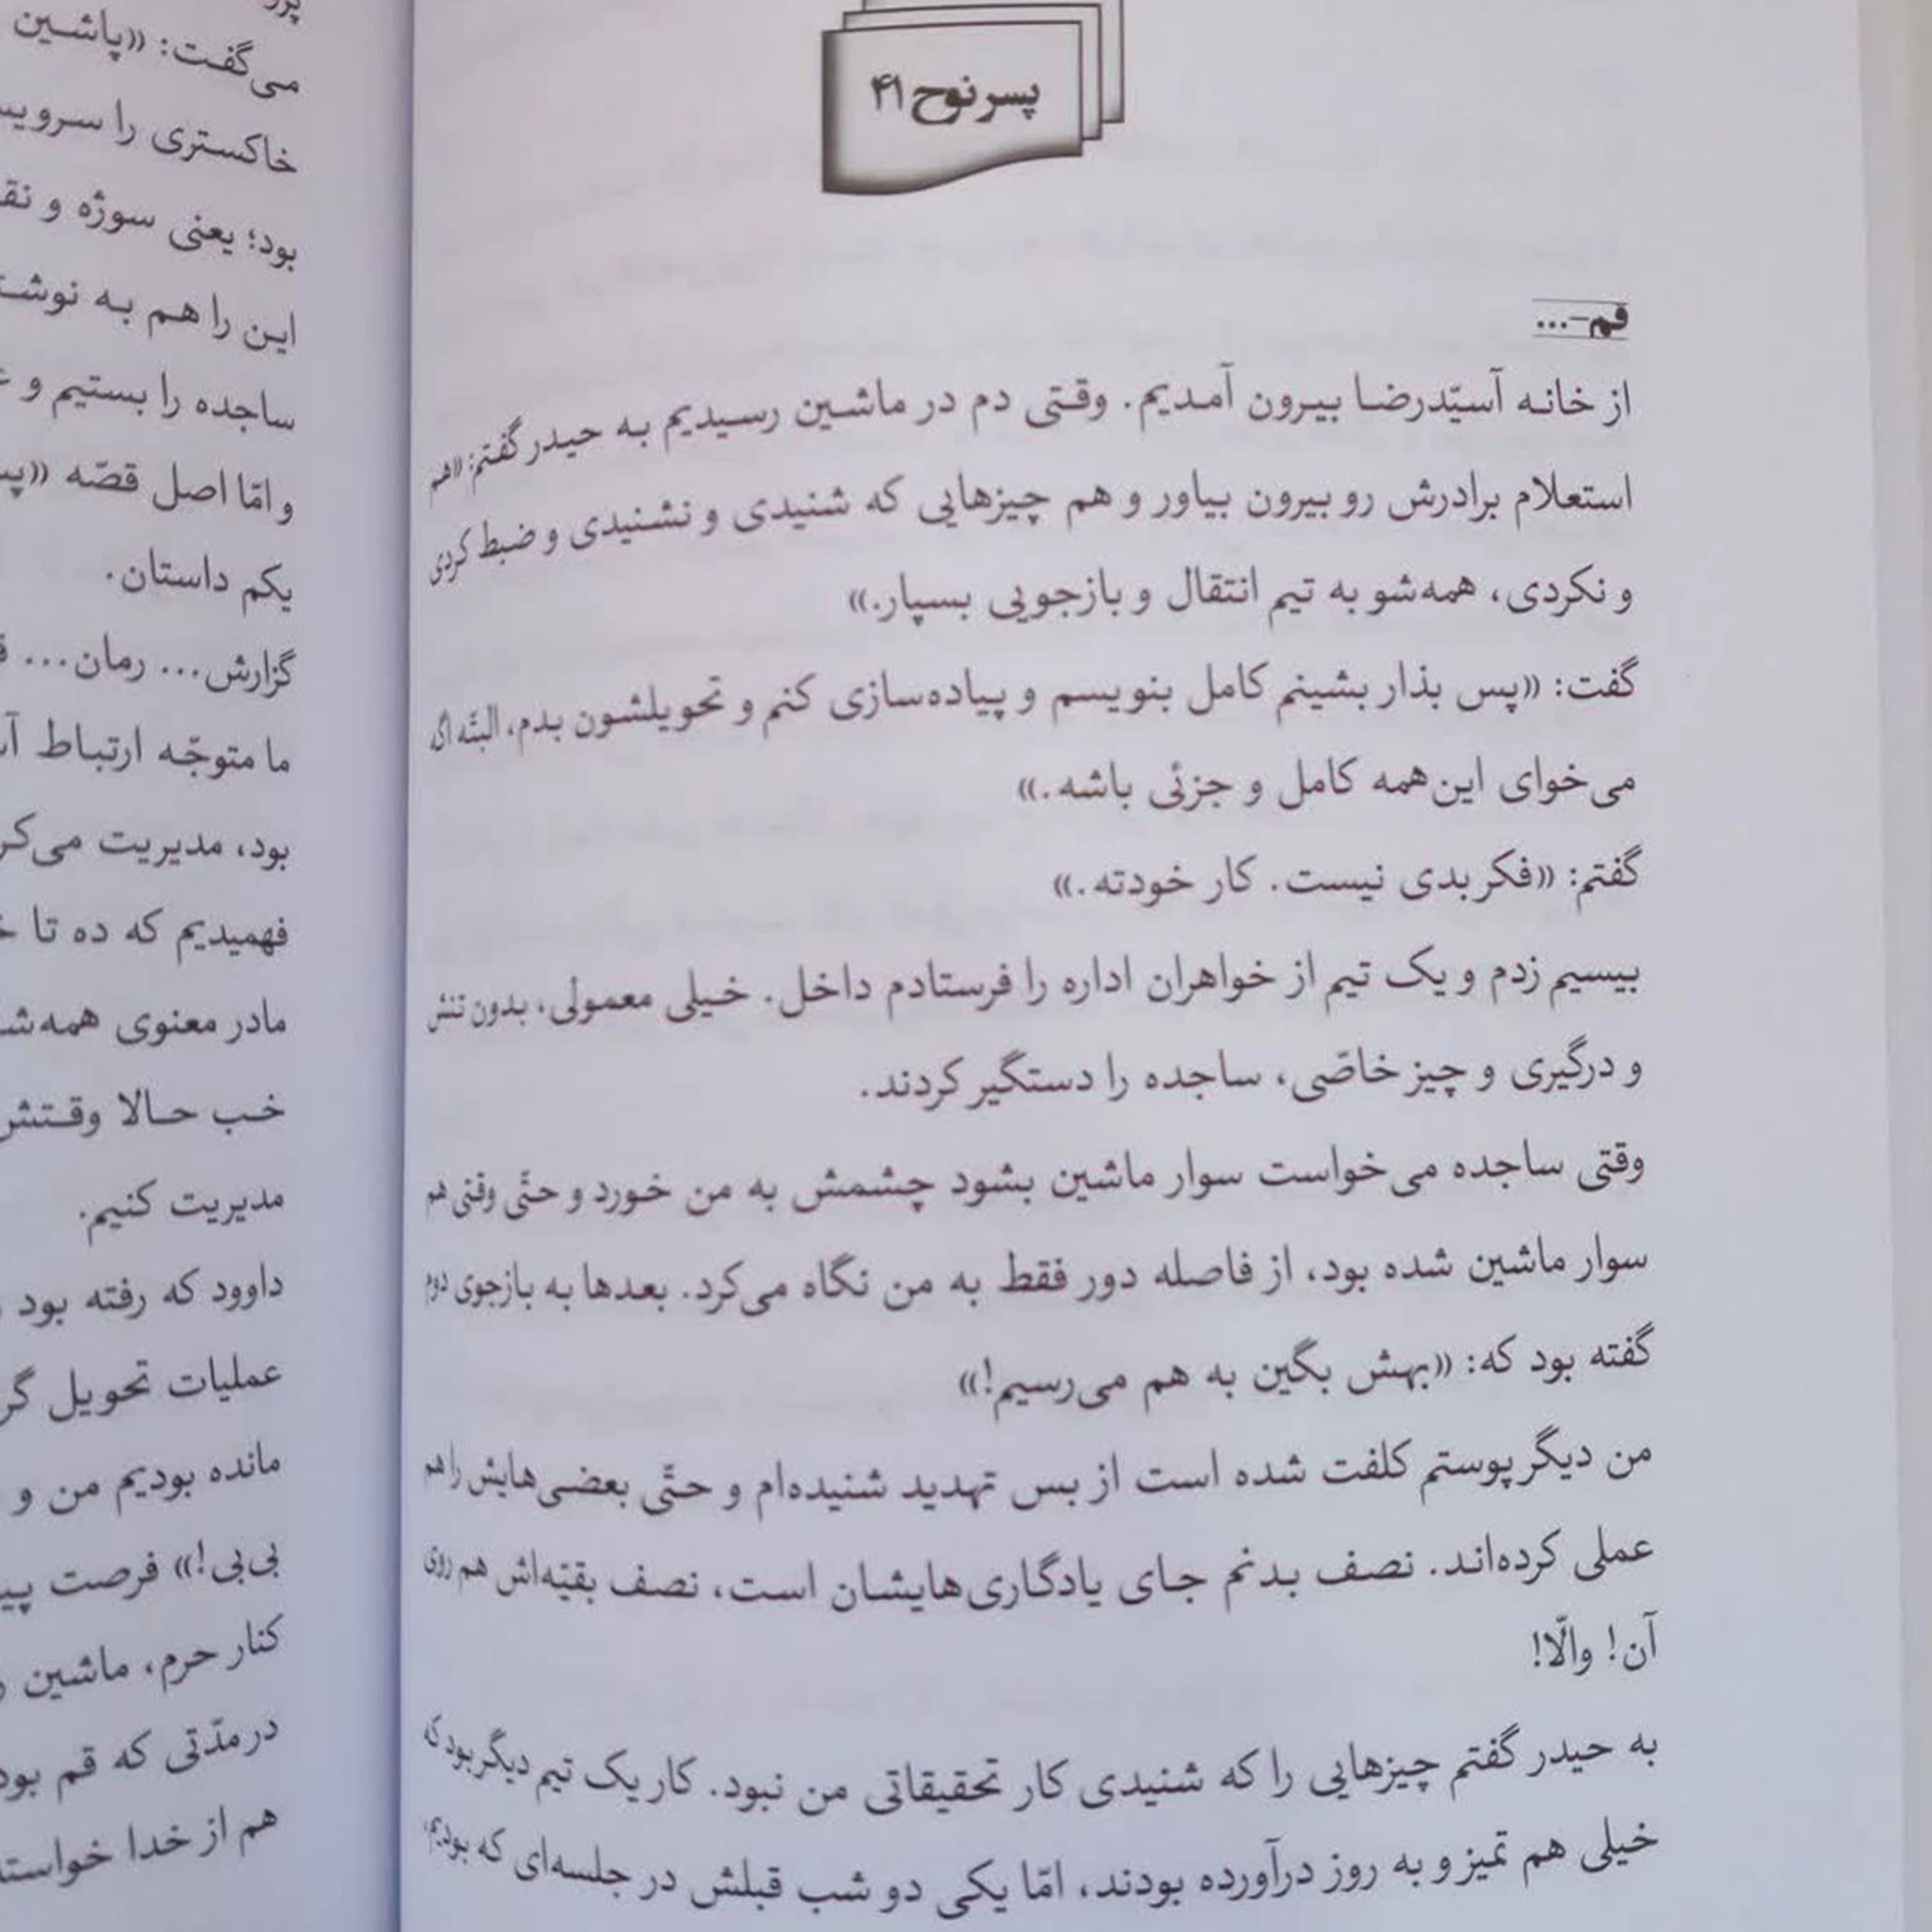 پسر نوح ۴۱
قم-...
از خانه آسیّدرضا بیرون آمدیم. وقتی دم در ماشین رسیدیم به حیدر گفتم: «هم
استعلام برادرش رو بیرون بیاور و هم چیزهایی که شنیدی و نشنیدی و ضبط کردی
و نکردی، همه‌شو به تیم انتقال و بازجویی بسپار.»
گفت: «پس بذار بشینم کامل بنویسم و پیاده‌سازی کنم و تحویلشون بدم، البتّه اگه
می‌خوای این‌همه کامل و جزئی باشه.»
گفتم: «فکر بدی نیست. کار خودته.»
بیسیم زدم و یک تیم از خواهران اداره را فرستادم داخل. خیلی معمولی، بدون تنش
و درگیری و چیز خاصّی، ساجده را دستگیر کردند.
وقتی ساجده می‌خواست سوار ماشین بشود چشمش به من خورد و حتّی وقتی هم
سوار ماشین شده بود، از فاصله دور فقط به من نگاه می‌کرد. بعدها به بازجوی دوم
گفته بود که: «بهش بگین به هم می‌رسیم!»
من دیگر پوستم کلفت شده است از بس تهدید شنیده‌ام و حتّی بعضی‌هایش را هم
عملی کرده‌اند. نصف بدنم جای یادگاری‌هایشان است، نصف بقیّه‌اش هم روی
آن! والّا!
به حیدر گفتم چیزهایی را که شنیدی کار تحقیقاتی من نبود. کار یک تیم دیگر بود که
خیلی هم تمیز و به روز درآورده بودند، امّا یکی دو شب قبلش در جلسه‌ای که بودیم،
می‌گفت: «پاشین
خاکستری را
بود؛ یعنی سوژه و
این را هم به
ساجده را بستیم و
و امّا اصل قصّه
یکم داستان.
گزارش... رمان...
ما متوجّه ارتباط
بود، مدیریت
فهمیدیم که ده تا
مادر معنوی
خب حالا
مدیریت کنیم.
داوود که رفته بود
عملیات تحویل
مانده بودیم من و
بی‌بی!» فرصت
کنار حرم، ماشین
در مدّتی که قم
هم از خدا